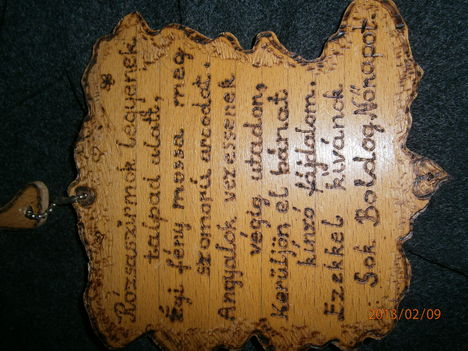 Rózsaszirmok legyenek
talpad alatt,
Égi fény mossa meg
szomorú arcodat.
Angyalok vezessenek
végig utadon,
Kerüljön el bánat
kínzó fájdalom.
Ezekkel kívánok
Sok Boldog Nőnapot!
2013/02/09